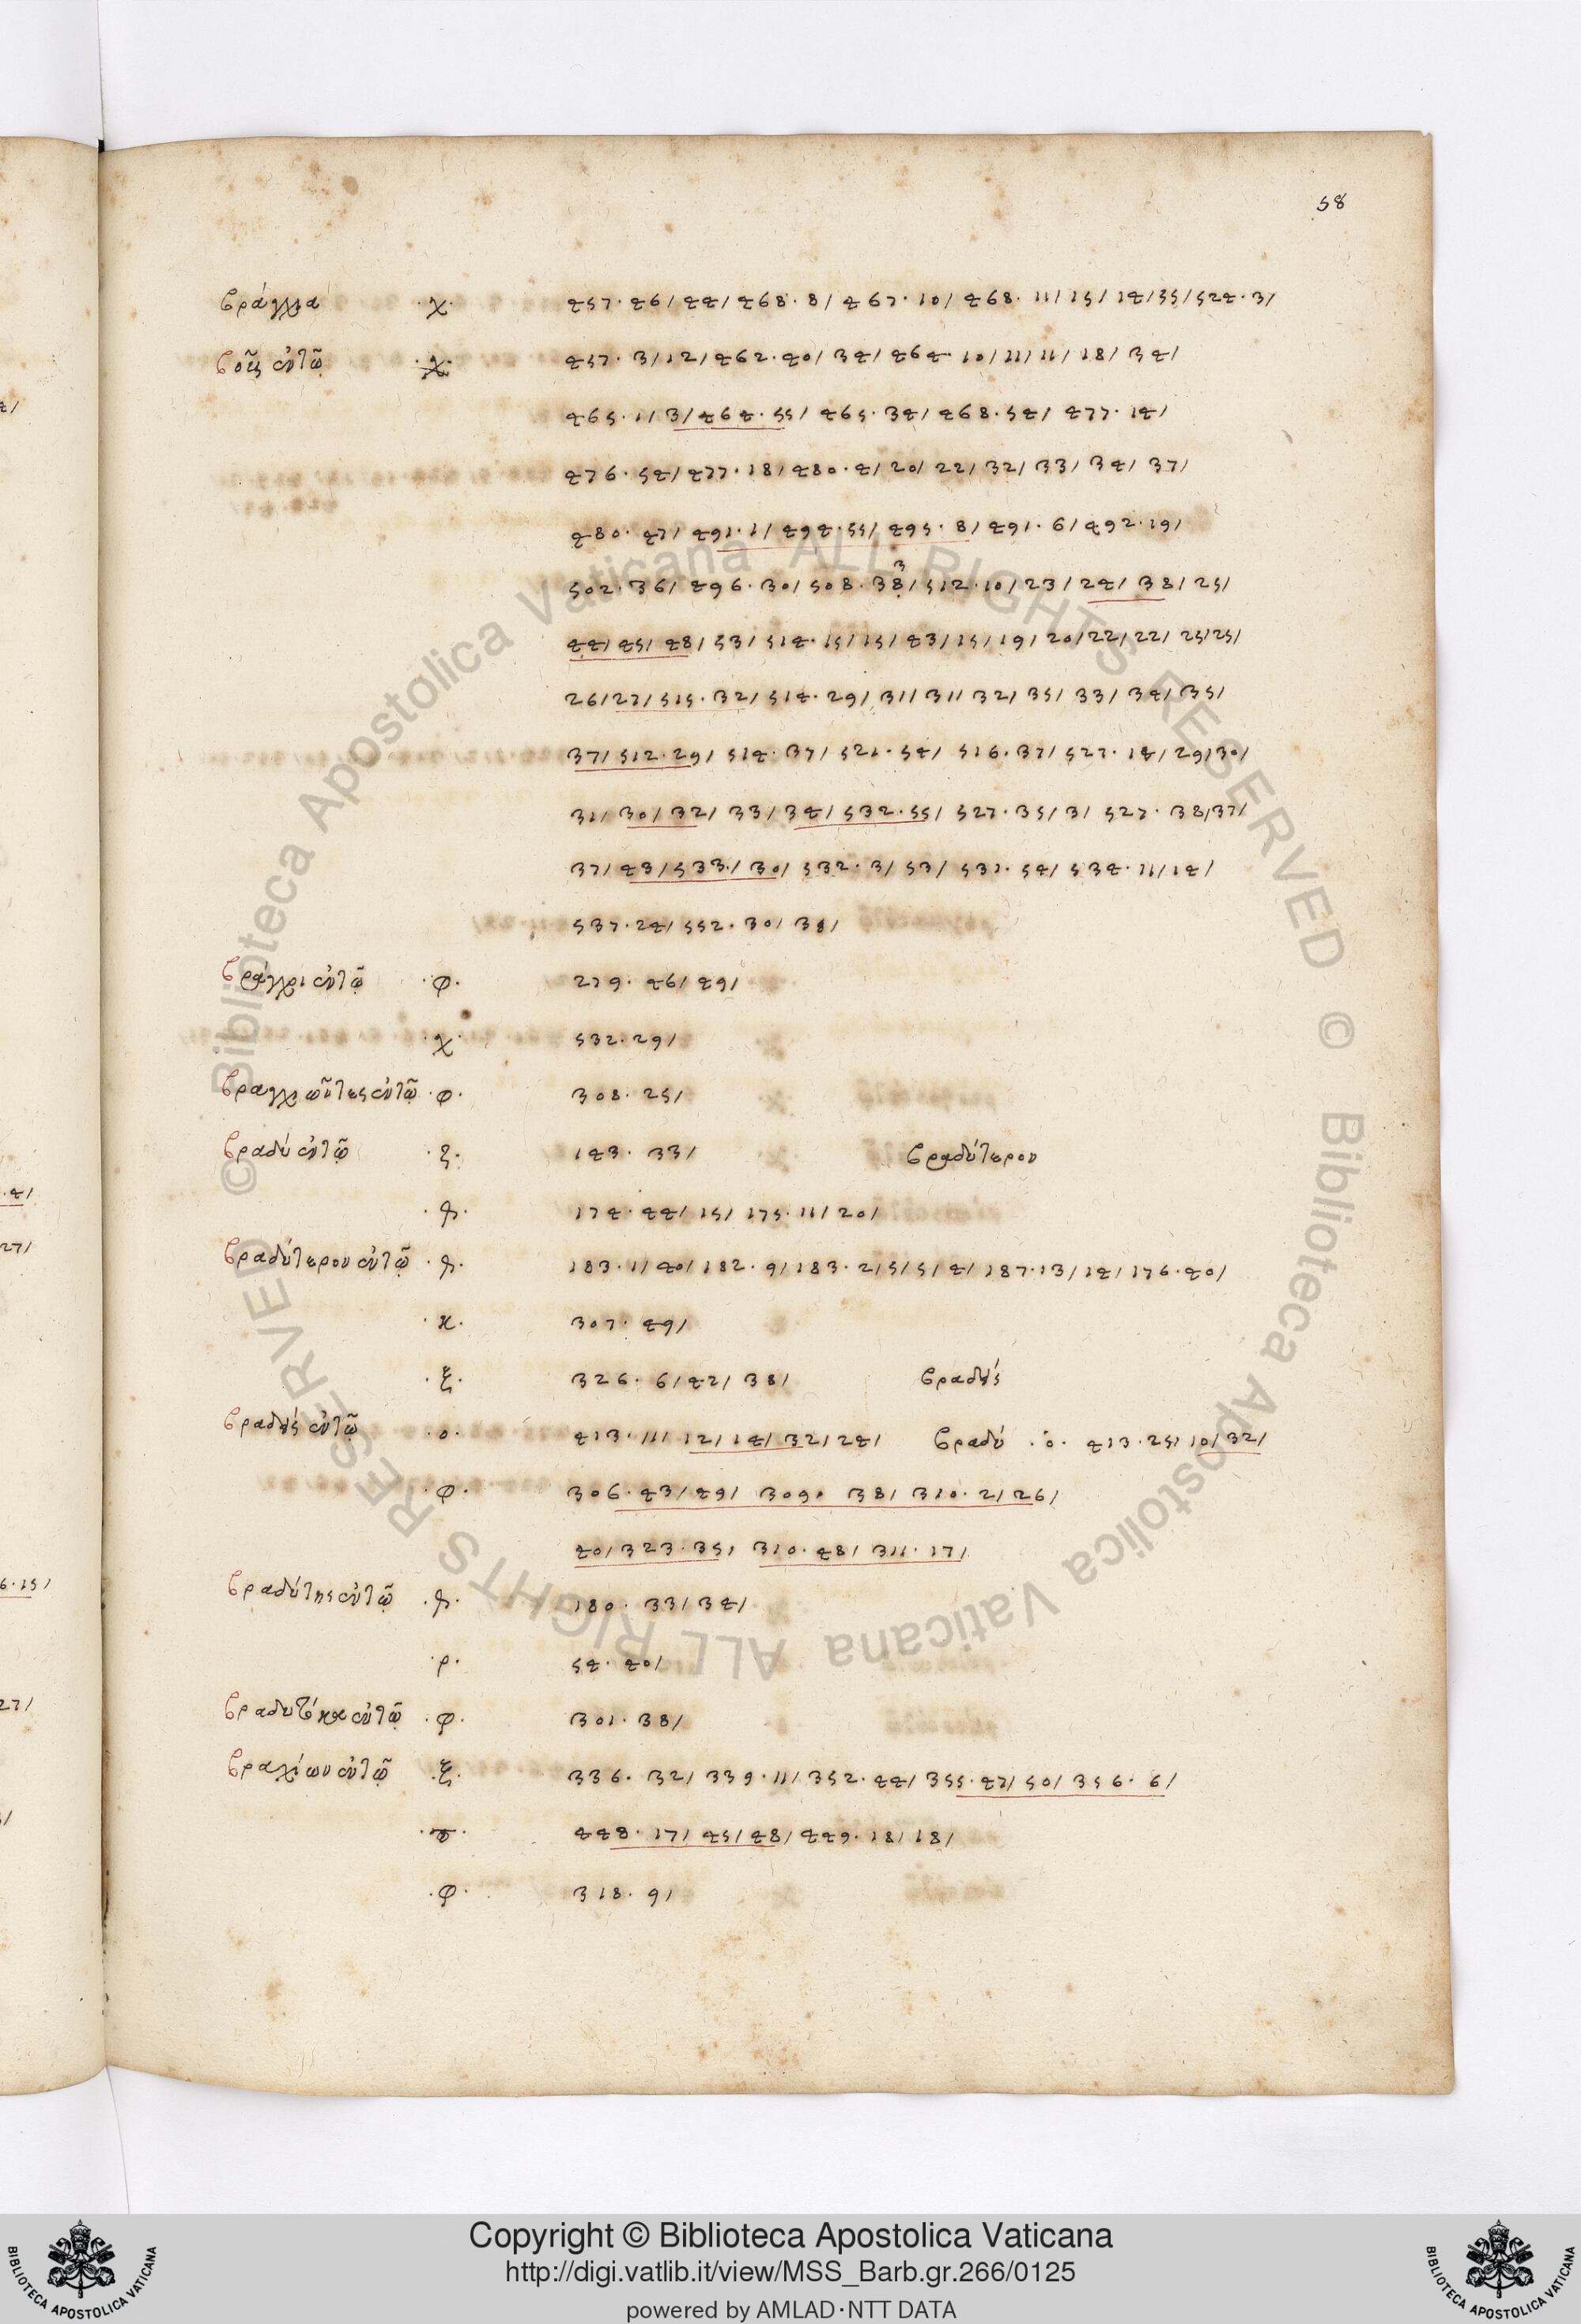 58
βράγχια ·χ· 457·46/44/468·8/467·10/468·11/15/14/55/524·3/
βοῦς ἐν τῷ ·χ· 457·3/12/462·40/34/464·10/11/11/18/34/
465·1/3/464·55/465·34/468·54/477·14/
476·54/477·18/480·4/20/22/32/33/34/37/
480·47/491·1/494·55/495·8/491·6/492·19/
502·36/496·30/508·38/512·10/23/24/38/25/
3
44/45/48/53/514·15/15/43/15/19/20/22/22/25/25/
26/27/515·32/514·29/31/31/32/35/33/34/35/
37/512·29/514·37/521·54/516·37/527·14/29/30/
31/30/32/33/34/532·55/527·35/3/527·38/37/
37/43/533·/30/532·3/53/531·54/534·11/14/
537·24/552·30/38/
βράγχι ἐν τῷ ·φ· 279·46/49/
·χ· 532·29/
βραγχιῶντες ἐν τῷ ·φ· 308·25/
βραδύ ἐν τῷ ·ζ· 143·33/ βραδύτερον
174·44/15/175·11/20/
βραδύτερον ἐν τῷ 183·1/40/182·9/183·2/5/5/4/187·13/14/176·40/
·κ· 307·49/
·ξ· 326·6/42/38/ βραδύς
βραδύς ἐν τῷ ·ο· 413·11/12/14/32/24/ βραδύ ·ο· 413·25/10/32/
·φ· 306·43/49/ 309· 38/310·2/26/
40/323·35/ 310·48/311·17/
βραδύτης ἐν τῷ 180·33/34/
·ρ· 54·40/
ἐν τῷ ·φ· 301·38/
βραχίων ἐν τῷ ·ξ· 336·32/339·11/352·44/355·47/50/356·6/
448·17/45/48/449·18/18/
·φ· 318·9/
Copyright © Biblioteca Apostolica Vaticana
http://digi.vatlib.it/view/MSS_Barb.gr.266/0125
powered by AMLAD·NTT DATA
BIBLIOTECA APOSTOLICA VATICANA
BIBLIOTECA APOSTOLICA VATICANA
© Biblioteca Apostolica Vaticana ALL RIGHTS RESERVED
© Biblioteca Apostolica Vaticana ALL RIGHTS RESERVED